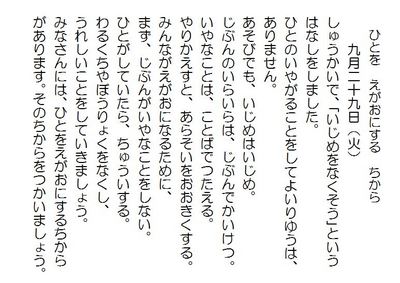 ひとを　えがおにする　ちから
九月二十九日（火）
しゅうかいで、「いじめをなくそう」という
はなしをしました。
ひとのいやがることをしてよいりゆうは、
ありません。
あそびでも、いじめはいじめ。
じぶんのいらいらは、じぶんでかいけつ。
いやなことは、ことばでつたえる。
やりかえすと、あらそいをおおきくする。
みんながえがおになるために、
まず、じぶんがいやなことをしない。
ひとがしていたら、ちゅういする。
わるくちやぼうりょくをなくし、
うれしいことをしていきましょう。
みなさんには、ひとをえがおにするちから
があります。そのちからをつかいましょう。